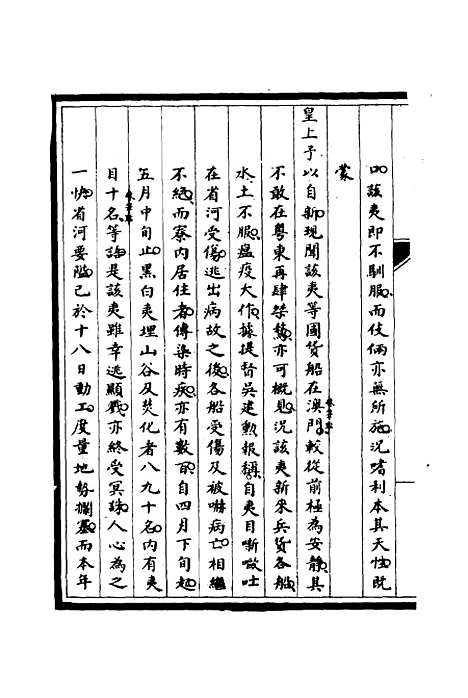 口該夷即不馴服而伎倆亦無所施況嗜利本其天性既
蒙
皇上予以自新現聞該夷等國貨船在澳門較從前極為安靜其
不敢在粵東再肆桀驁亦可概見況該夷新來兵貨各船
水土不服瘟疫大作據提督吳建勳報稱自夷目嘶噭吐
在省河受傷逃出病故之後各船受傷及被嚇病亡相繼
不絕而寮內居住者傳染時疾亦有數百自四月下旬起
五月中旬止黑白夷埋山谷及焚化者八九十名內有夷
目十名等語是該夷雖幸逃顯戮亦終受冥誅人心為之
一快省河要隘已於十八日動工度量地勢攔塞而本年